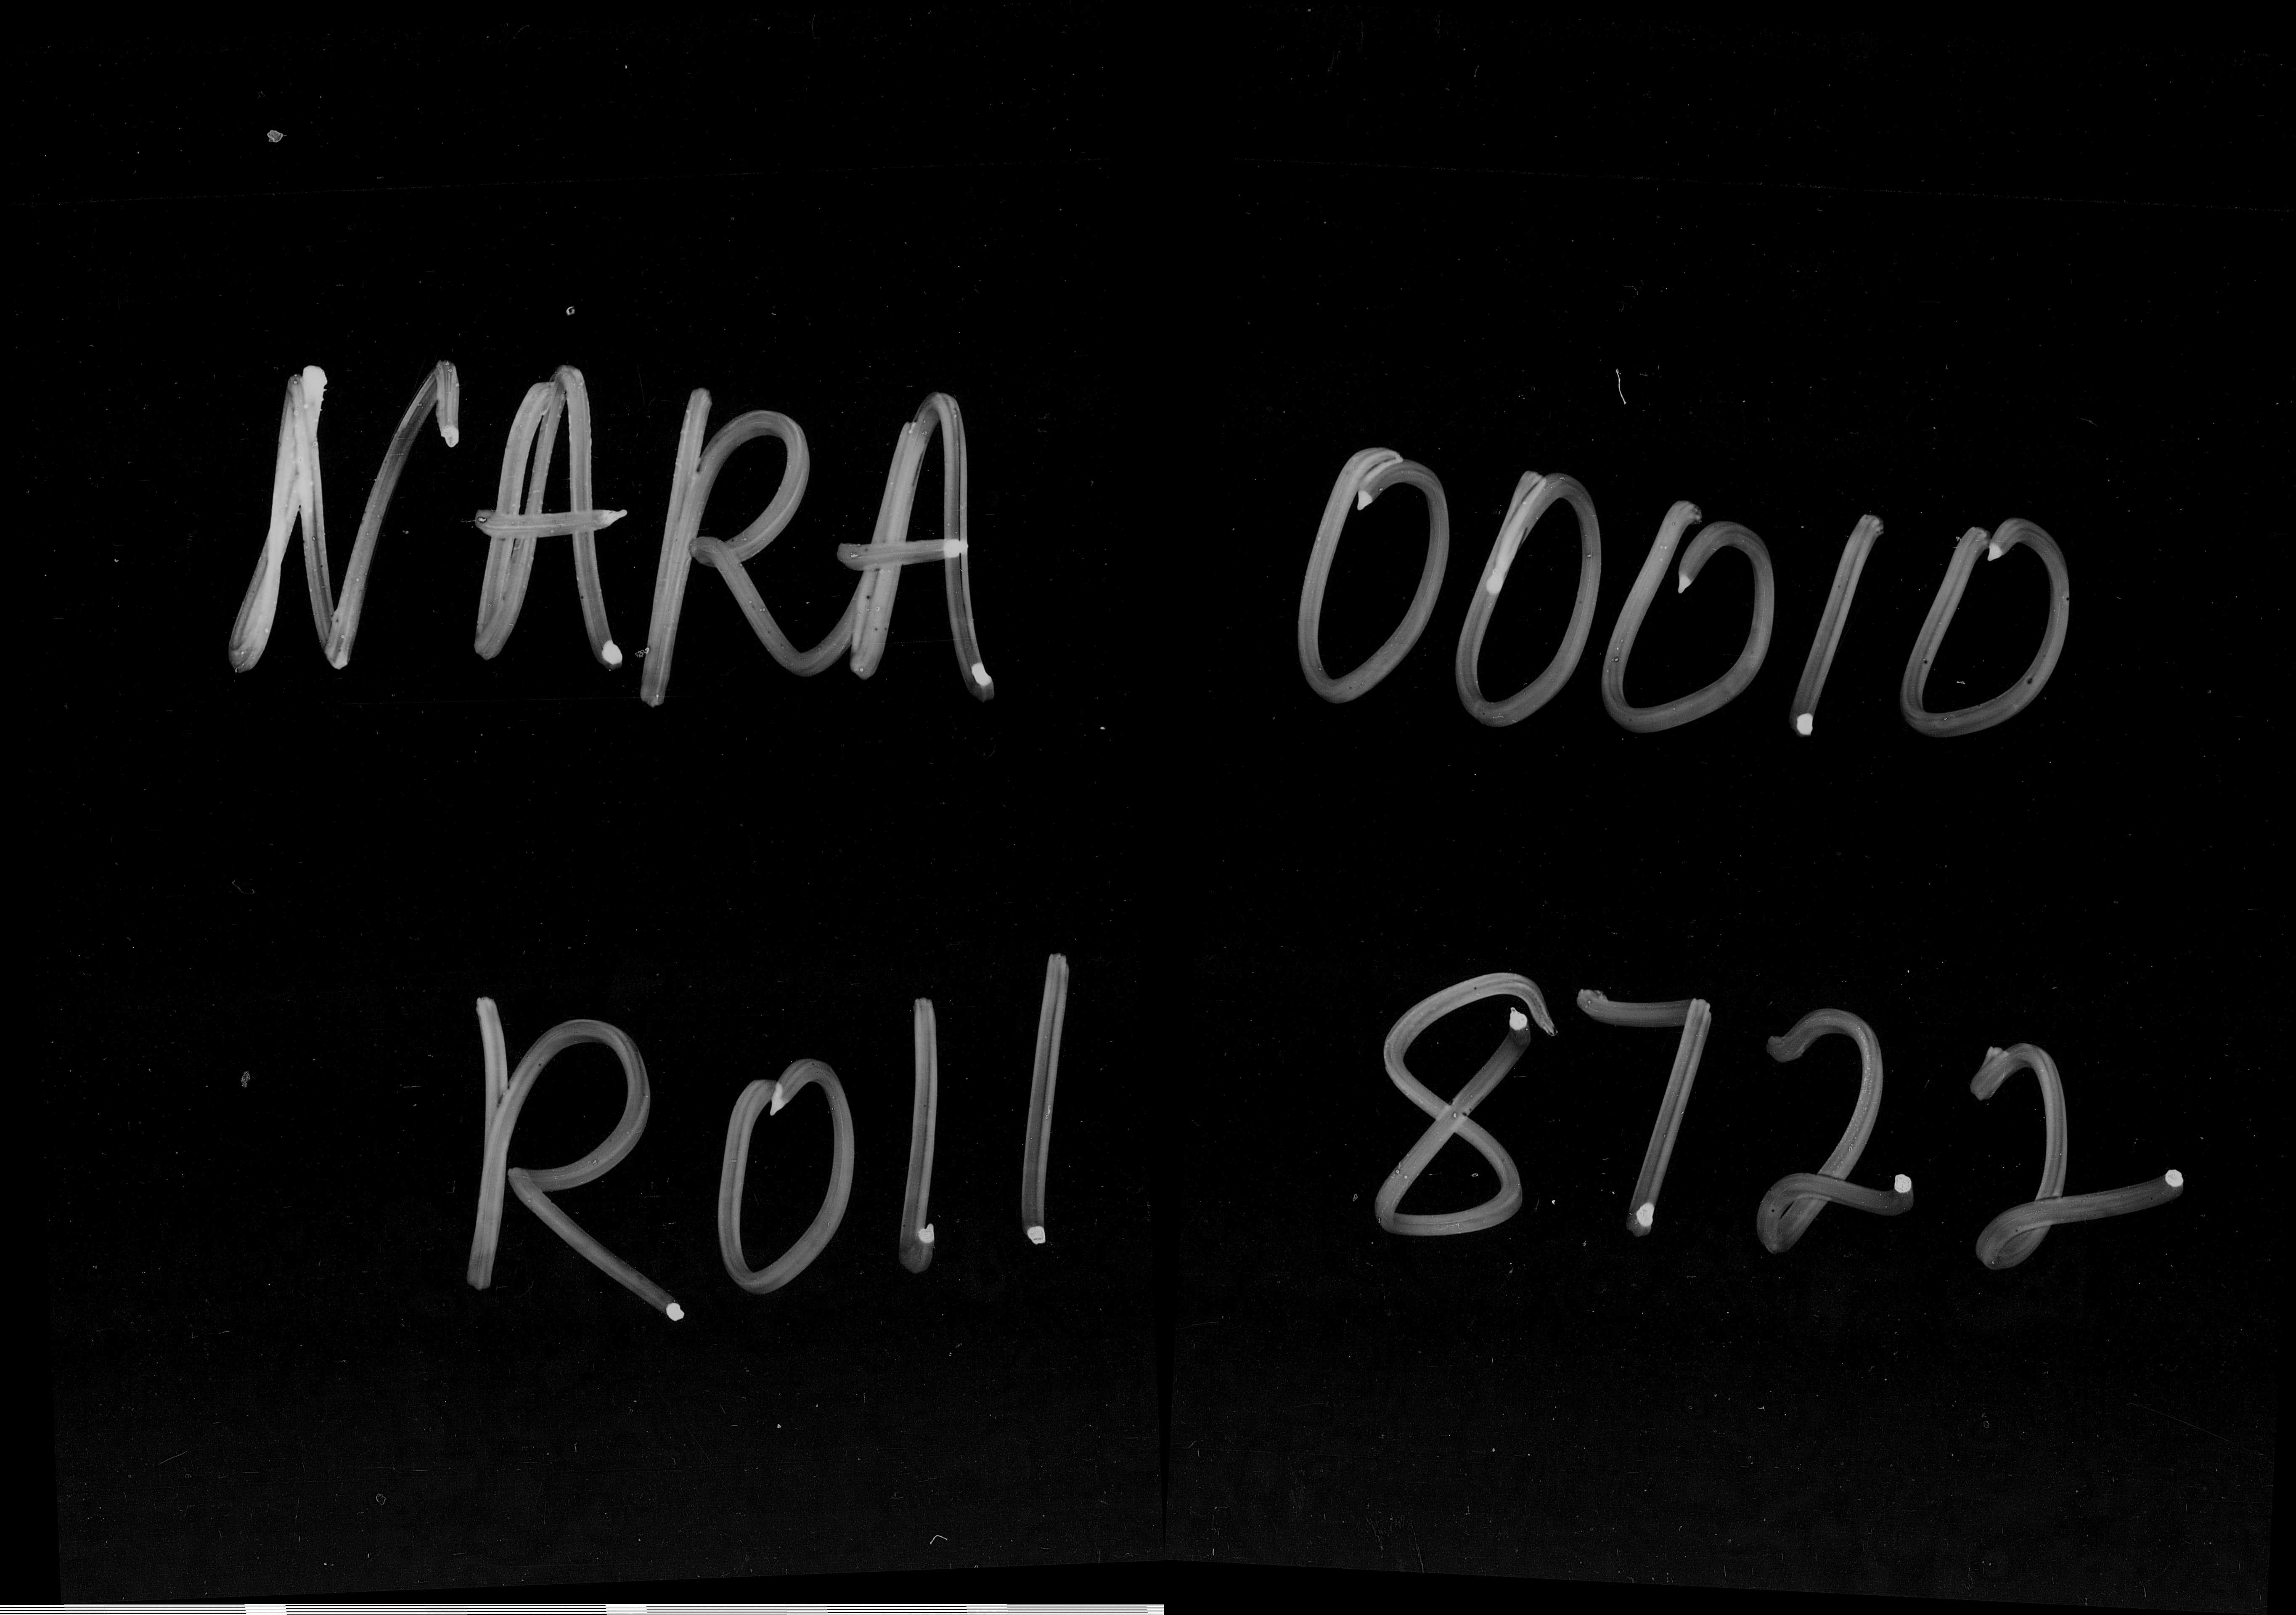 NARA 00010
Roll 8722